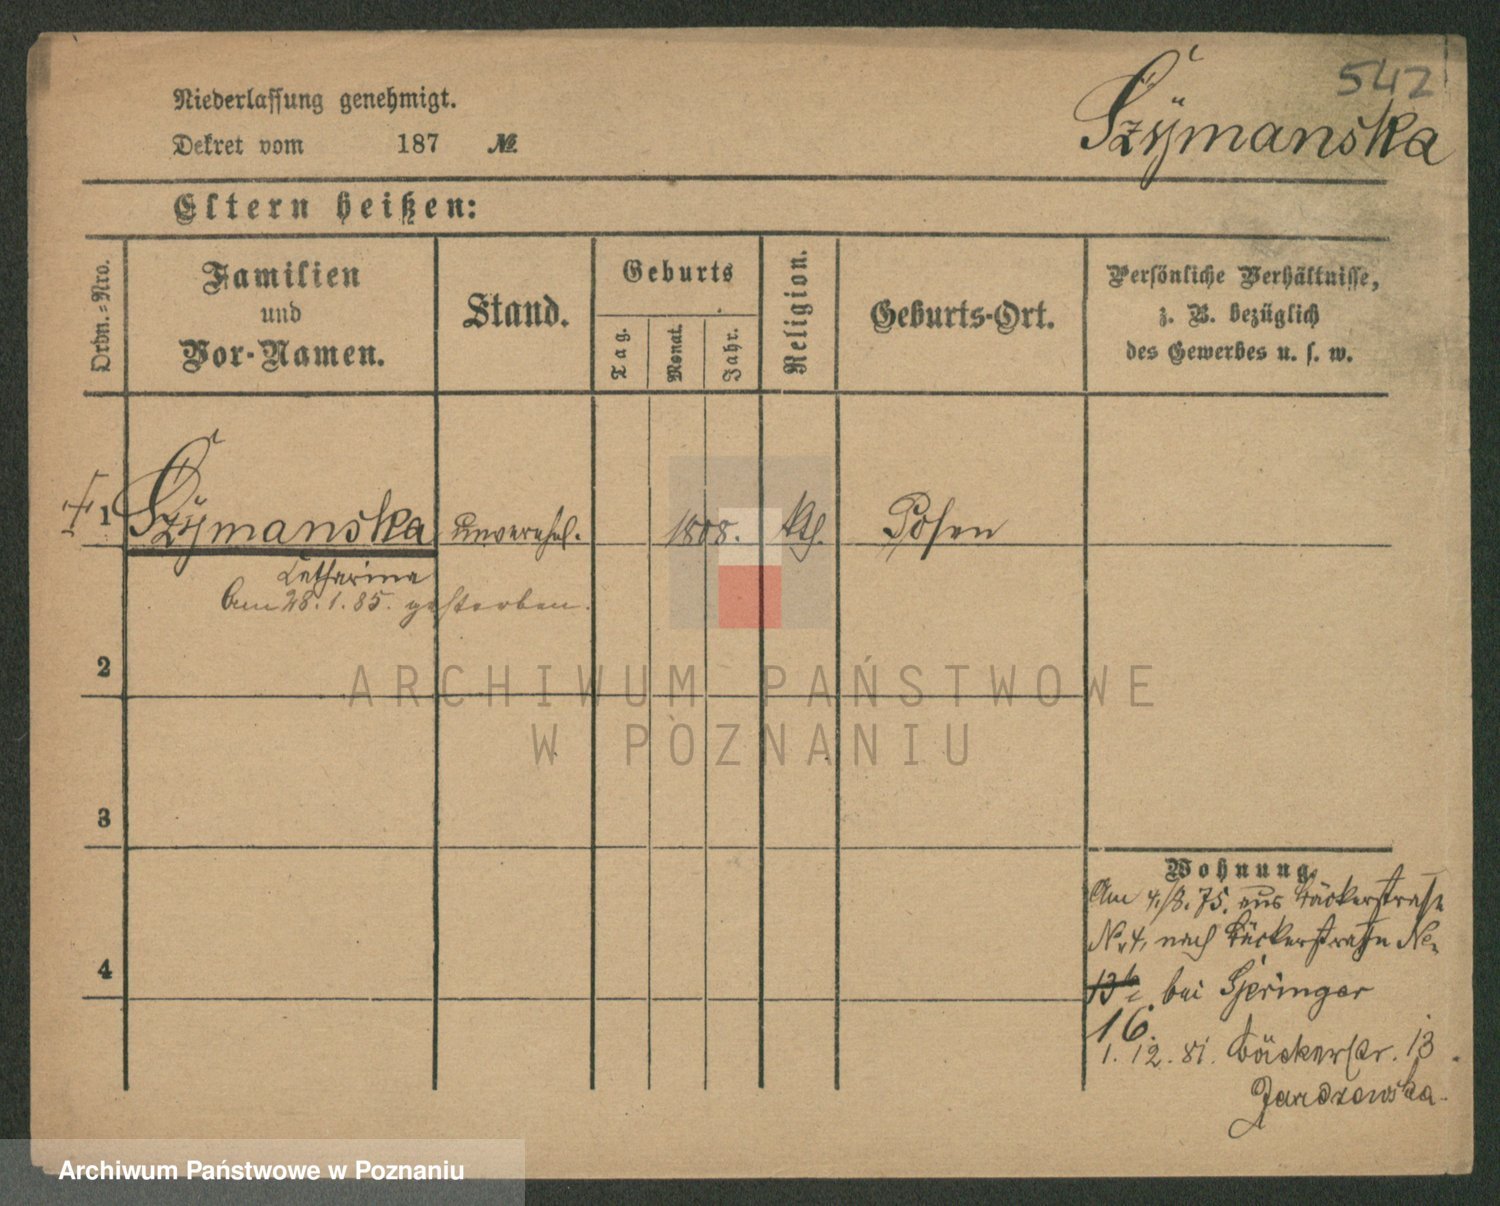 542
Szÿmanska
Niederlassung genehmigt.
Dekret vom 187 №
Eltern heißen:
Ordn.-Nro.
Familien
und
Vor-Namen.
Stand.
Geburts
Tag.
Monat.
Jahr.
Religion.
Geburts-Ort.
Persönliche Verhältnisse,
z. B. bezüglich
des Gewerbes u. s. w.
1 Szÿmanska unverehel. 1808. kth. Posen
Catharina
Am 28.1.85. gestorben.
2
3
4
Wohnung.
Am 4./8.75. aus Bäckerstraße
No 4, nach Bäckerstraße No
13b bei Springer
16.
1.12.81. Bäckerstr. 13
ARCHIWUM PAŃSTWOWE
W POZNANIU
Archiwum Państwowe w Poznaniu